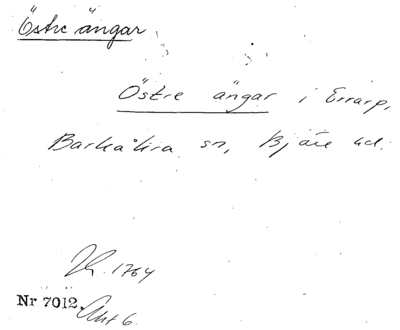 Östre ängar
Östre ängar i Errarp,
Barkåkra sn, Bjäre hd.
1764
Nr 7012. Akt 6.